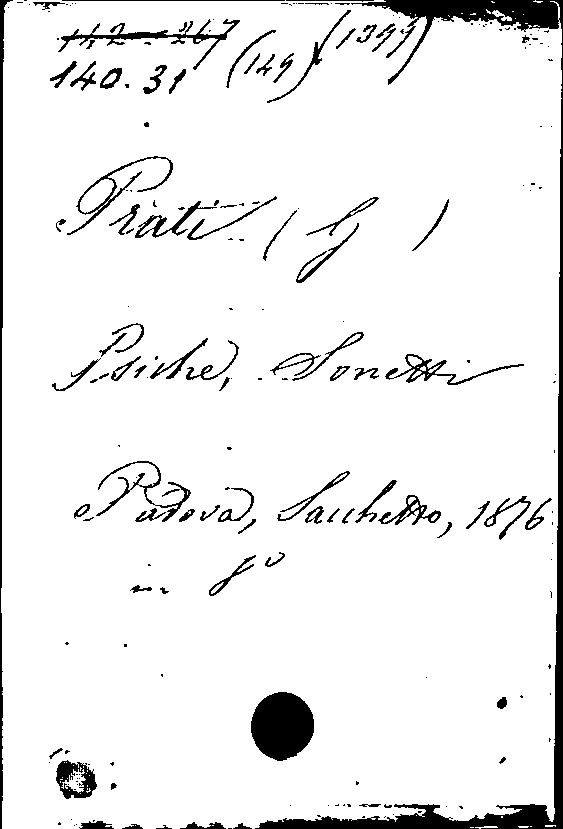 142 - 267
140. 31 (149) (1399)
Prati ( G )
Psiche, Sonetti
Padova, Sacchetto, 1876
in 8º